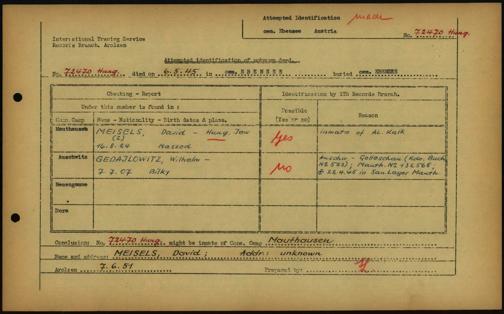 Attempted Identification made
cem. Ebensee Austria
No. 72470 Hung.
International Tracing Service
Records Branch, Arolsen
Attempted identification of unknown dead.
No. 72470 Hung. died on 6.5.45 in cem. EBENSEE buried cem. EBENSEE
Checking - Report
Identifications by ITS Records Branch.
Under this number is found in :
Possible (Yes or no)
Reason
Conc. Camp
Name - Nationality - Birth dates & place.
Mauthausen
MEISELS, David - Hung. Jew
(2)
16.8.24
Yes
inmate of AL. Kalk
Auschwitz
GEDAJLOWITZ, Wilhelm -
7.7.07 Bilky
No
Auschw. - Golleschau (Kdo. Buch
№ 582); Mauth. № 132565,
22.4.45 in San. Lager Mauth.
Neuengamme
Dora
Conclusion: No. 72470 Hung. might be inmate of Conc. Camp Mauthausen
Name and address: MEISELS, David ; Addr: unknown
Arolsen 7.6.51 Prepared by: